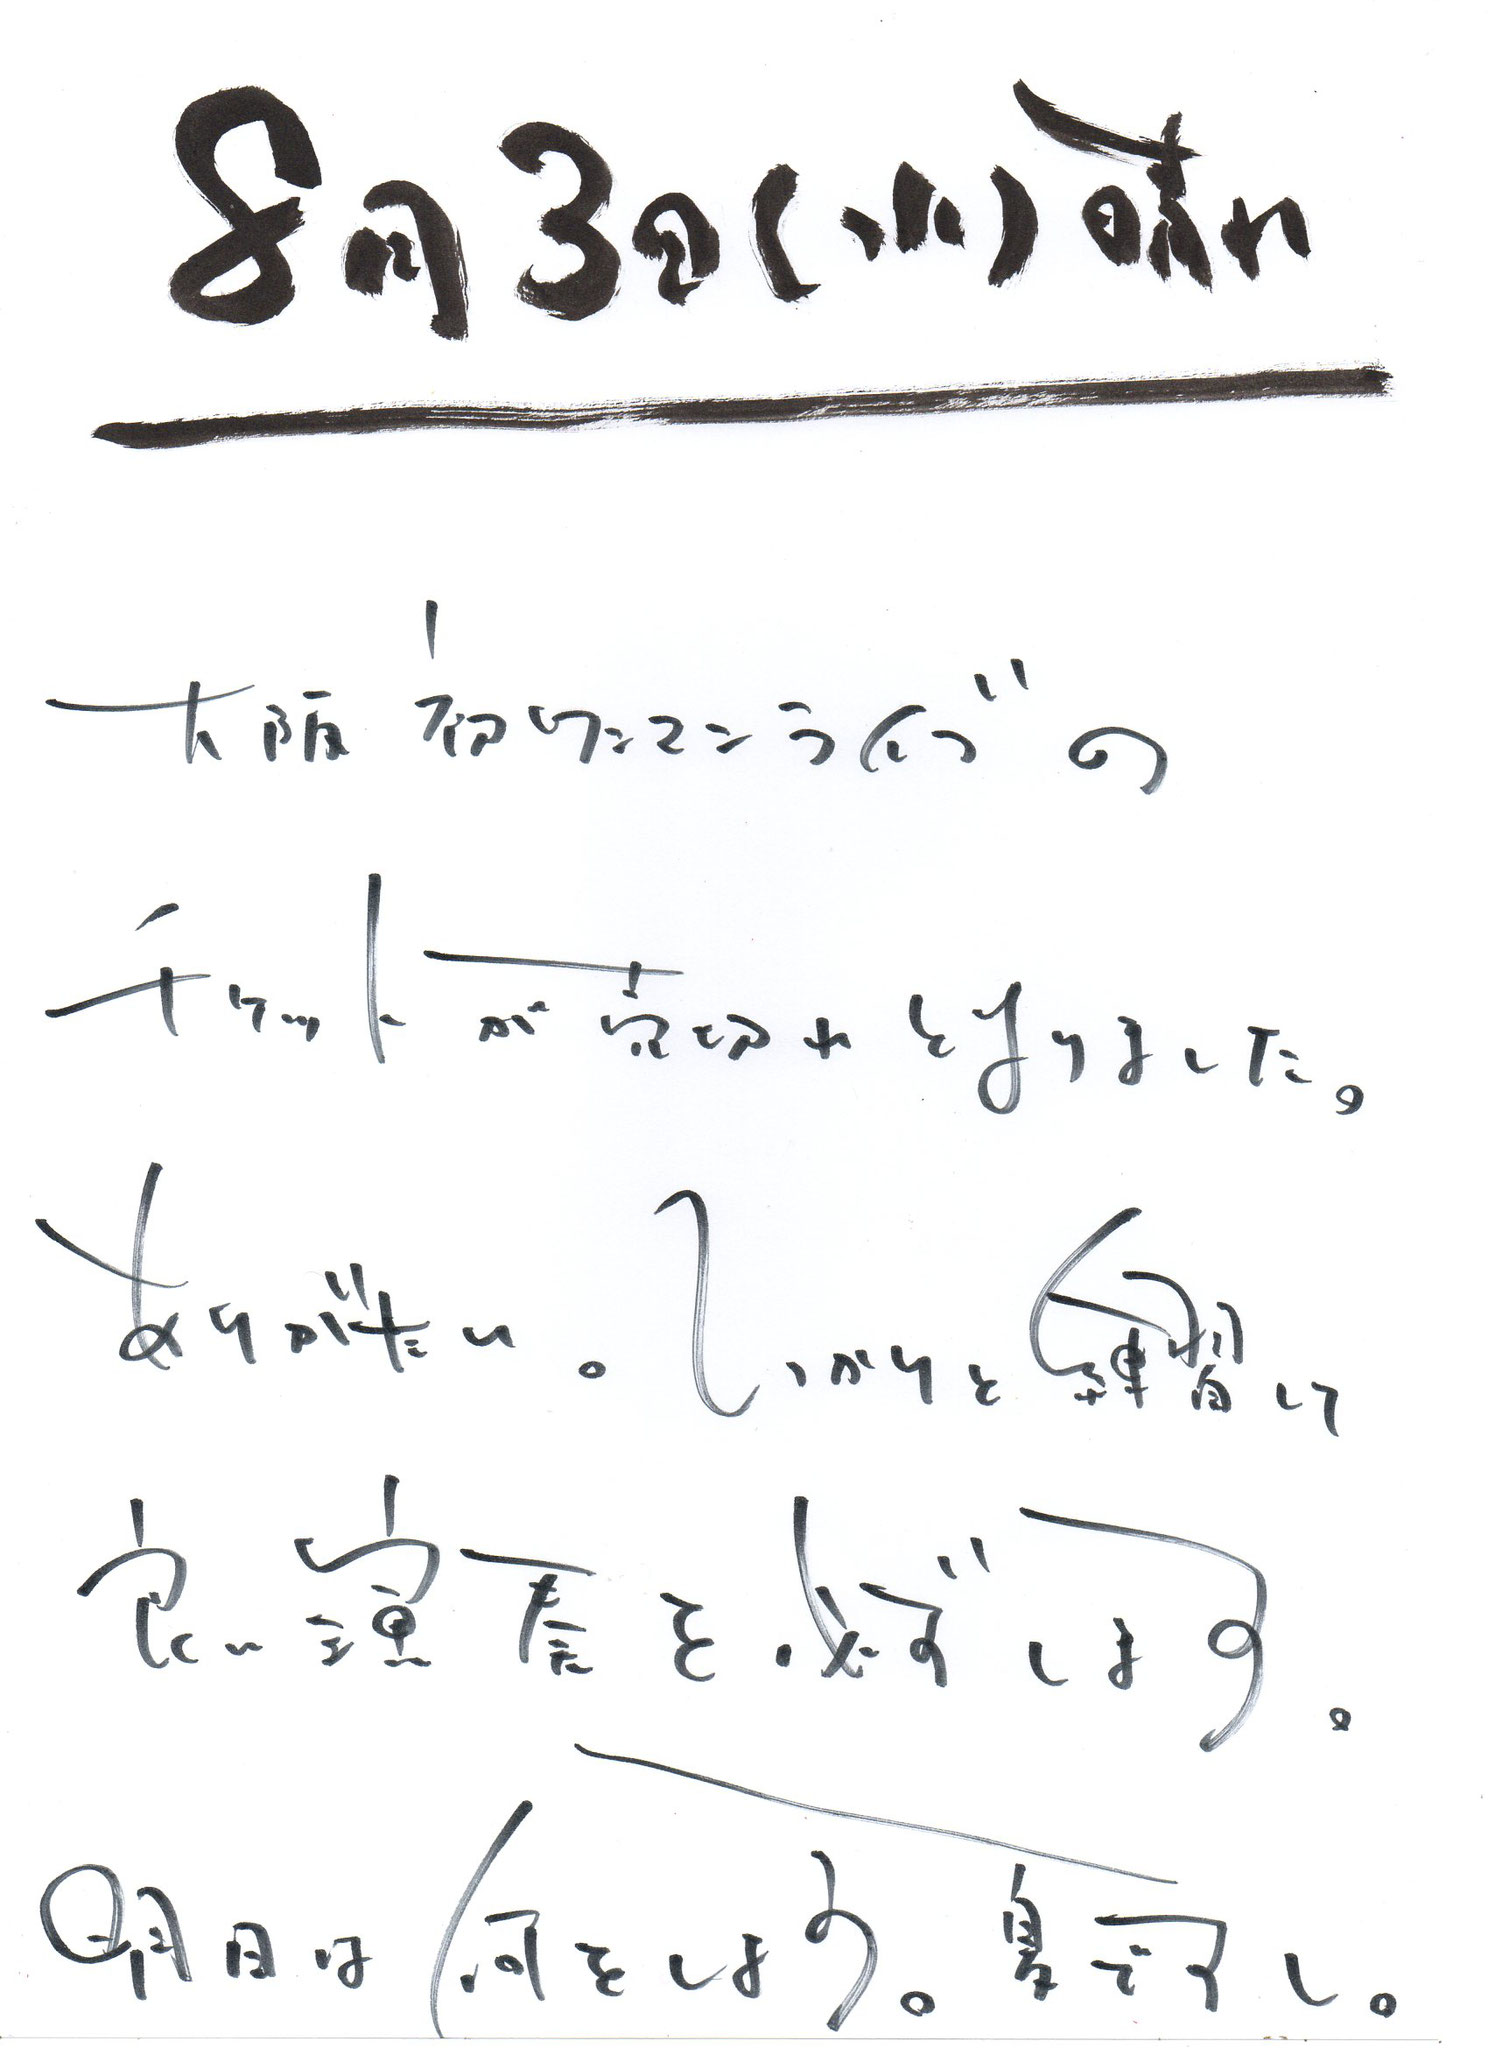 8月3日(水)晴れ
大阪初ワンマンライブの
チケットが売切れとなりました。
ありがたい。しっかりと練習して
良い演奏を必ずします。
明日は何をしよう。夏ですし。